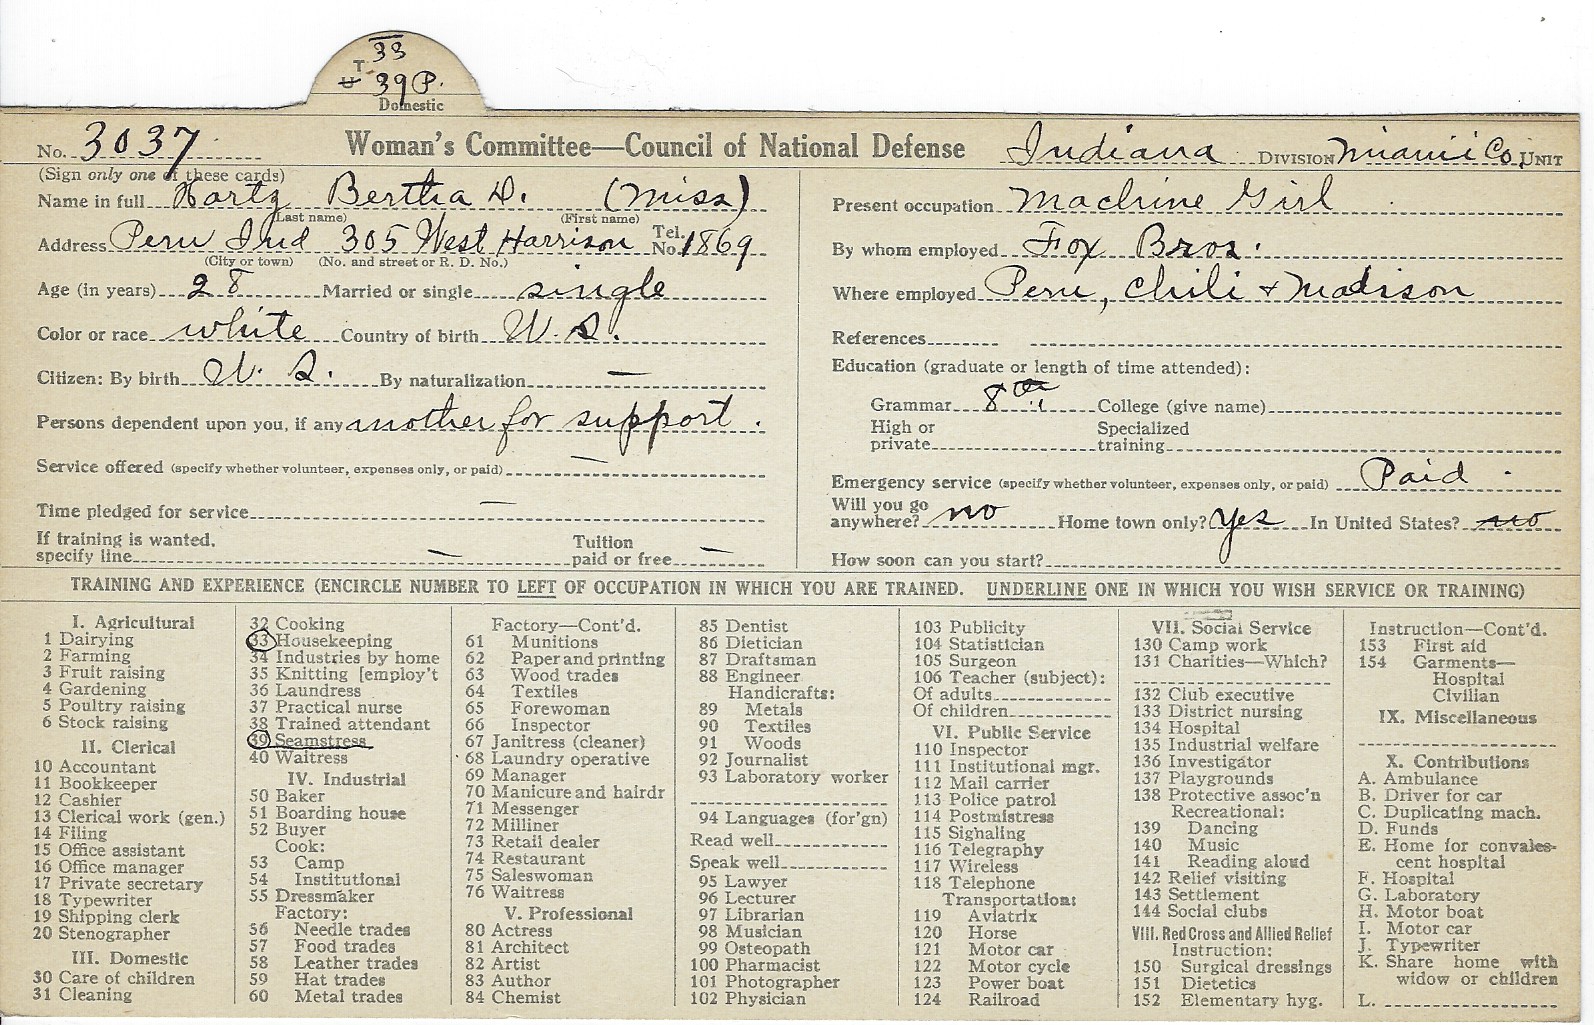 33
T
U 39 P.
Domestic
No. 3037 Woman's Committee—Council of National Defense Indiana DIVISION Miami Co. UNIT
(Sign only one of these cards)
Name in full Hartz Bertha D. (Miss)
(Last name) (First name)
Address Peru Ind 305 West Harrison Tel. No. 1869
(City or town) (No. and street or R. D. No.)
Age (in years) 28 Married or single single
Color or race white Country of birth U. S.
Citizen: By birth U. S. By naturalization —
Persons dependent upon you, if any mother for support.
Service offered (specify whether volunteer, expenses only, or paid) —
Time pledged for service —
If training is wanted, specify line — Tuition paid or free —
Present occupation Machine Girl
By whom employed Fox Bros.
Where employed Peru, Chili + Madison
References
Education (graduate or length of time attended):
Grammar 8th College (give name)
High or private Specialized training
Emergency service (specify whether volunteer, expenses only, or paid) Paid
Will you go anywhere? no Home town only? yes In United States? no
How soon can you start?
TRAINING AND EXPERIENCE (ENCIRCLE NUMBER TO LEFT OF OCCUPATION IN WHICH YOU ARE TRAINED. UNDERLINE ONE IN WHICH YOU WISH SERVICE OR TRAINING)
I. Agricultural
1 Dairying
2 Farming
3 Fruit raising
4 Gardening
5 Poultry raising
6 Stock raising
II. Clerical
10 Accountant
11 Bookkeeper
12 Cashier
13 Clerical work (gen.)
14 Filing
15 Office assistant
16 Office manager
17 Private secretary
18 Typewriter
19 Shipping clerk
20 Stenographer
III. Domestic
30 Care of children
31 Cleaning
32 Cooking
33 Housekeeping
34 Industries by home
35 Knitting [employ't
36 Laundress
37 Practical nurse
38 Trained attendant
39 Seamstress
40 Waitress
IV. Industrial
50 Baker
51 Boarding house
52 Buyer
Cook:
53 Camp
54 Institutional
55 Dressmaker
Factory:
56 Needle trades
57 Food trades
58 Leather trades
59 Hat trades
60 Metal trades
Factory—Cont'd.
61 Munitions
62 Paper and printing
63 Wood trades
64 Textiles
65 Forewoman
66 Inspector
67 Janitress (cleaner)
68 Laundry operative
69 Manager
70 Manicure and hairdr
71 Messenger
72 Milliner
73 Retail dealer
74 Restaurant
75 Saleswoman
76 Waitress
V. Professional
80 Actress
81 Architect
82 Artist
83 Author
84 Chemist
85 Dentist
86 Dietician
87 Draftsman
88 Engineer
Handicrafts:
89 Metals
90 Textiles
91 Woods
92 Journalist
93 Laboratory worker
94 Languages (for'gn)
Read well
Speak well
95 Lawyer
96 Lecturer
97 Librarian
98 Musician
99 Osteopath
100 Pharmacist
101 Photographer
102 Physician
103 Publicity
104 Statistician
105 Surgeon
106 Teacher (subject):
Of adults
Of children
VI. Public Service
110 Inspector
111 Institutional mgr.
112 Mail carrier
113 Police patrol
114 Postmistress
115 Signaling
116 Telegraphy
117 Wireless
118 Telephone
Transportation:
119 Aviatrix
120 Horse
121 Motor car
122 Motor cycle
123 Power boat
124 Railroad
VII. Social Service
130 Camp work
131 Charities—Which?
132 Club executive
133 District nursing
134 Hospital
135 Industrial welfare
136 Investigator
137 Playgrounds
138 Protective assoc'n
Recreational:
139 Dancing
140 Music
141 Reading aloud
142 Relief visiting
143 Settlement
144 Social clubs
VIII. Red Cross and Allied Relief
Instruction:
150 Surgical dressings
151 Dietetics
152 Elementary hyg.
Instruction—Cont'd.
153 First aid
154 Garments—
Hospital
Civilian
IX. Miscellaneous
X. Contributions
A. Ambulance
B. Driver for car
C. Duplicating mach.
D. Funds
E. Home for convales-
cent hospital
F. Hospital
G. Laboratory
H. Motor boat
I. Motor car
J. Typewriter
K. Share home with
widow or children
L.